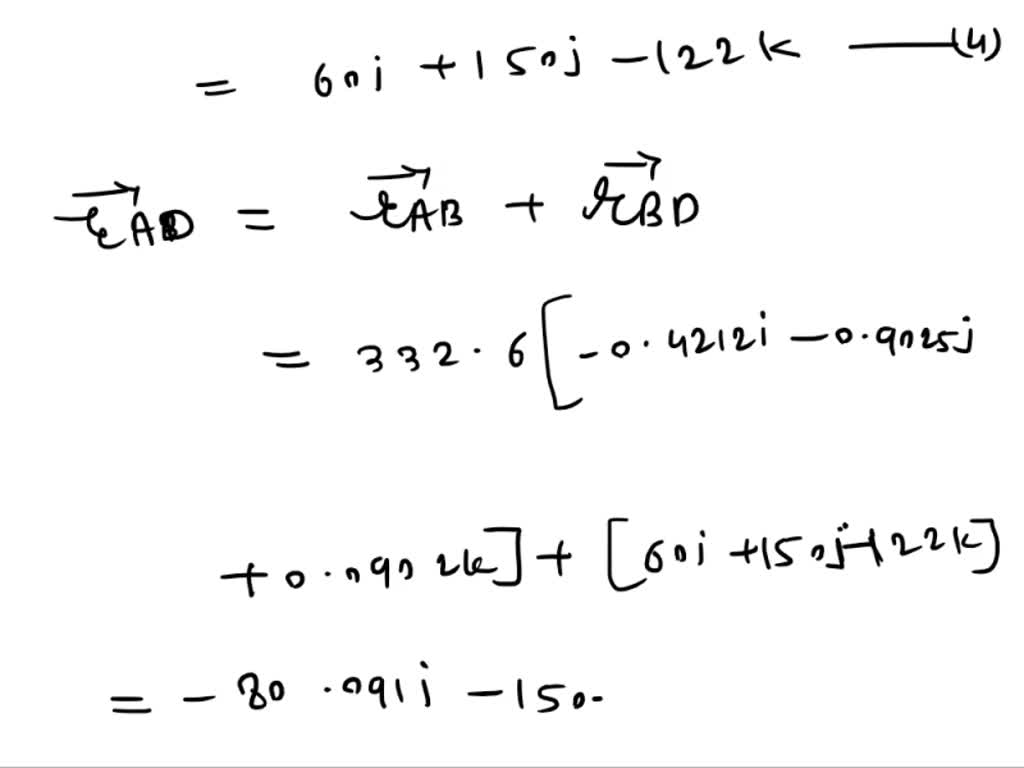 = 60i + 150j - 122k —(4)
→rAD = →rAB + →rBD
= 332.6 [ -0.4212i - 0.9025j
+ 0.0902k ] + [ 60i + 150j - 122k ]
= - 80.091i - 150.